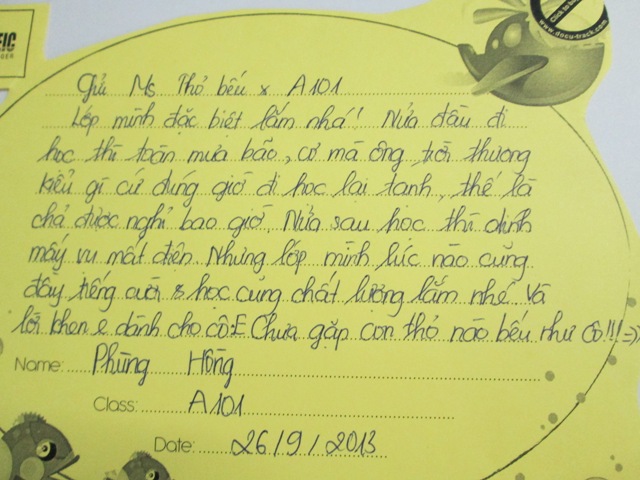 EIC
GER
Click to bu
www.docu-track.com
Gửi Ms Thỏ béu & A101
Lớp mình đặc biệt lắm nhá! Nửa đầu đi
học thì toàn mưa bão, cơ mà ông trời thương
kiểu gì cứ đúng giờ đi học lại tạnh, thế là
chả được nghỉ bao giờ. Nửa sau học thì dính
mấy vụ mất điện. Nhưng lớp mình lúc nào cũng
đầy tiếng cười & học cũng chất lượng lắm nhé. Và
lời khen e dành cho cô :E Chưa gặp con thỏ nào béu như cô!!! =))
Name: Phùng Hồng
Class: A101
Date: 26/9/2013